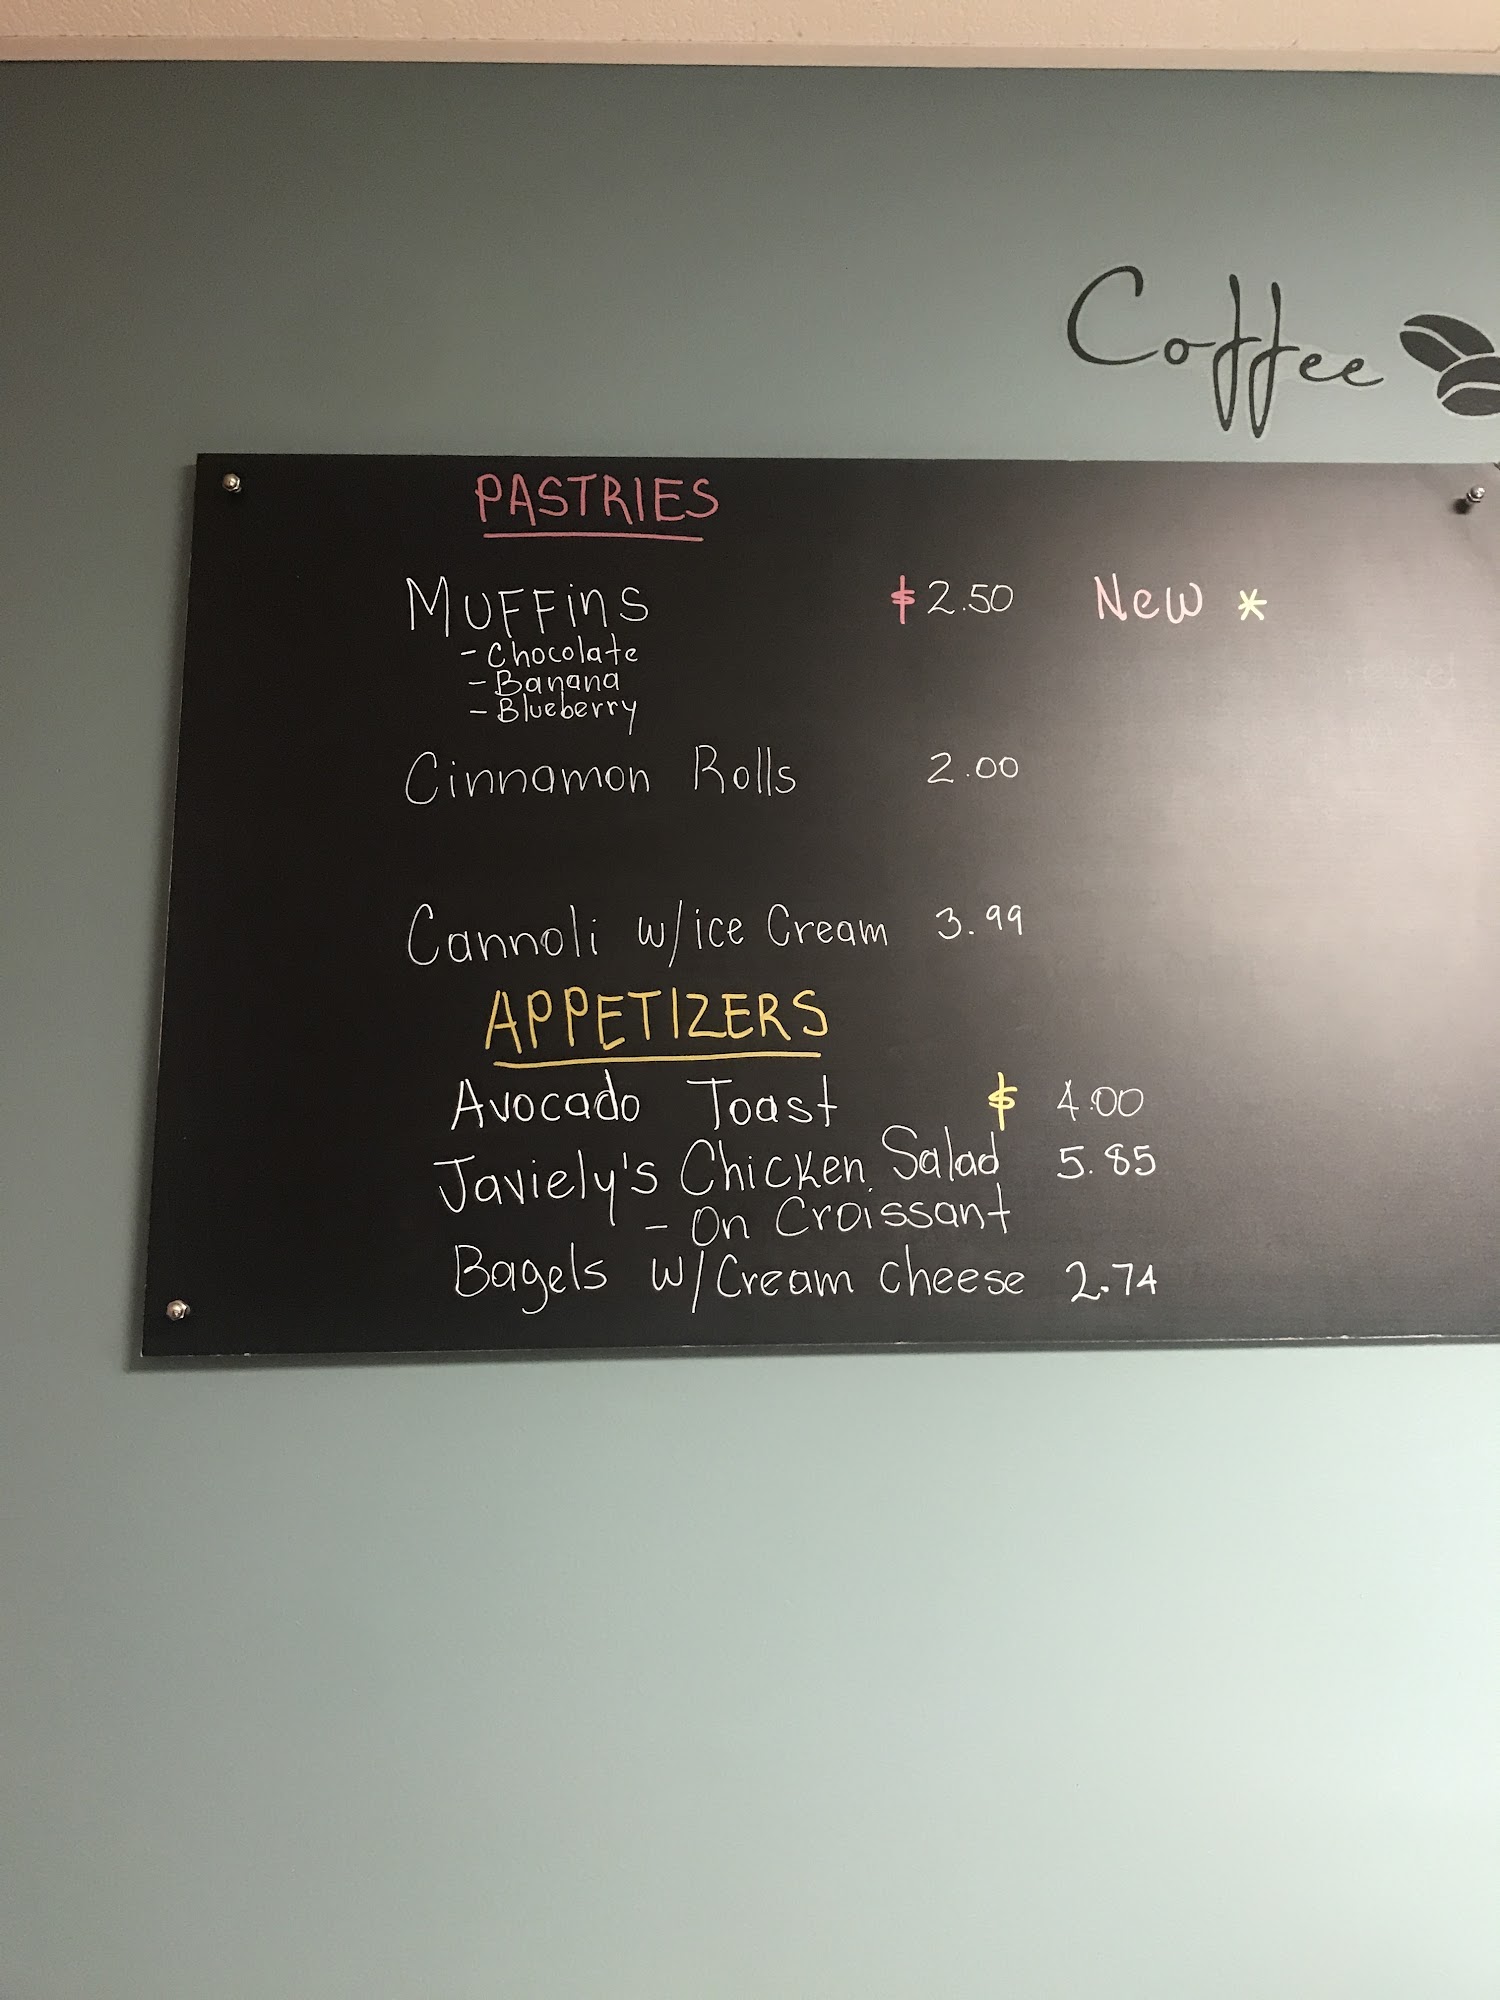 Coffee
PASTRIES
MUFFinS $2.50 New *
- Chocolate
- Banana
- Blueberry
Cinnamon Rolls 2.00
Cannoli w/ice Cream 3.99
APPETIZERS
Avocado Toast $ 4.00
Javiely's Chicken Salad 5.85
- On Croissant
Bagels w/Cream cheese 2.74